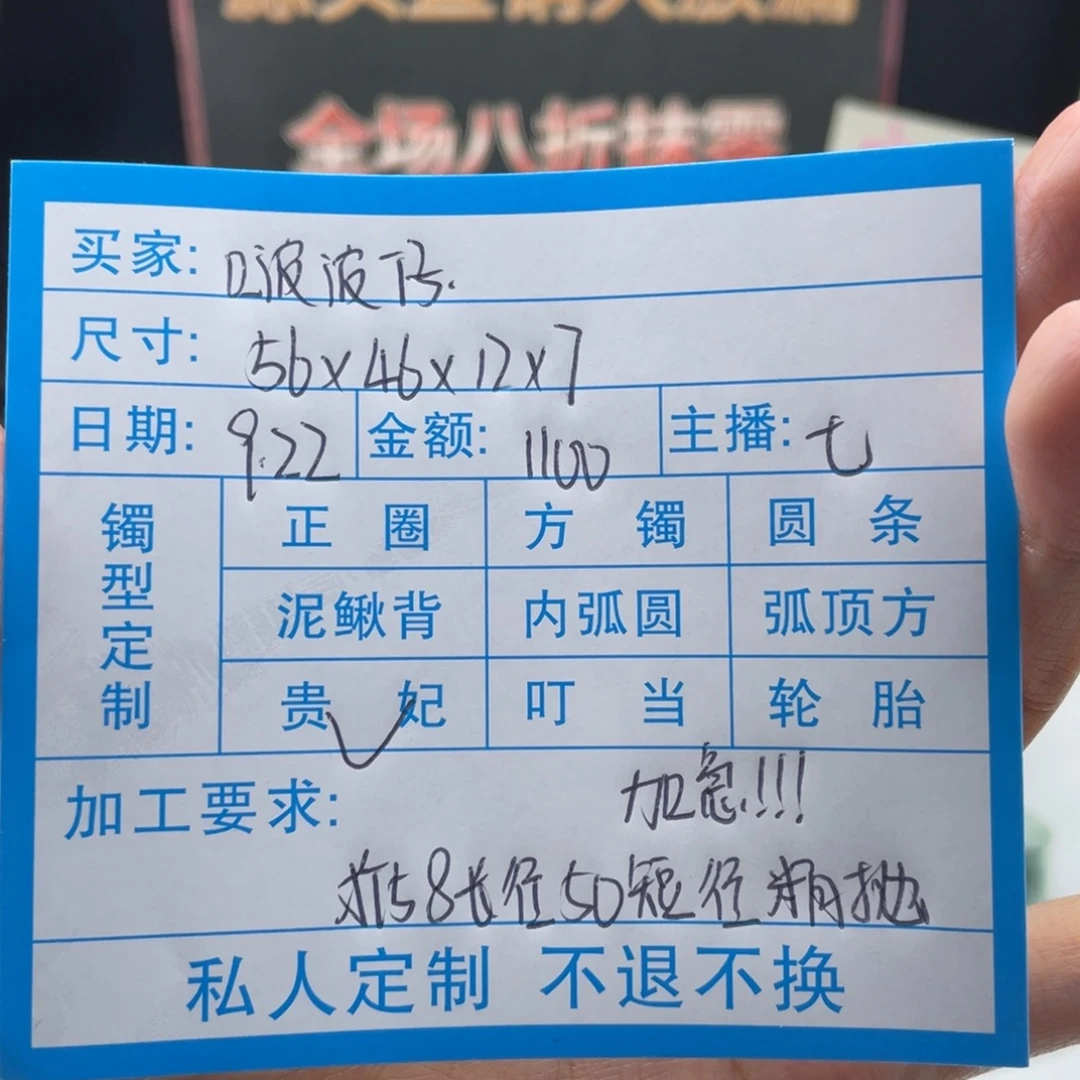 全场八折抹零
买家: 口波波
尺寸: 56x46x12x7
日期: 9.22 金额: 1100 主播: 七
镯型定制
正圈 方镯 圆条
泥鳅背 内弧圆 弧顶方
贵妃 叮当 轮胎
加工要求: 加急!!!
58长径50短径精抛
私人定制 不退不换